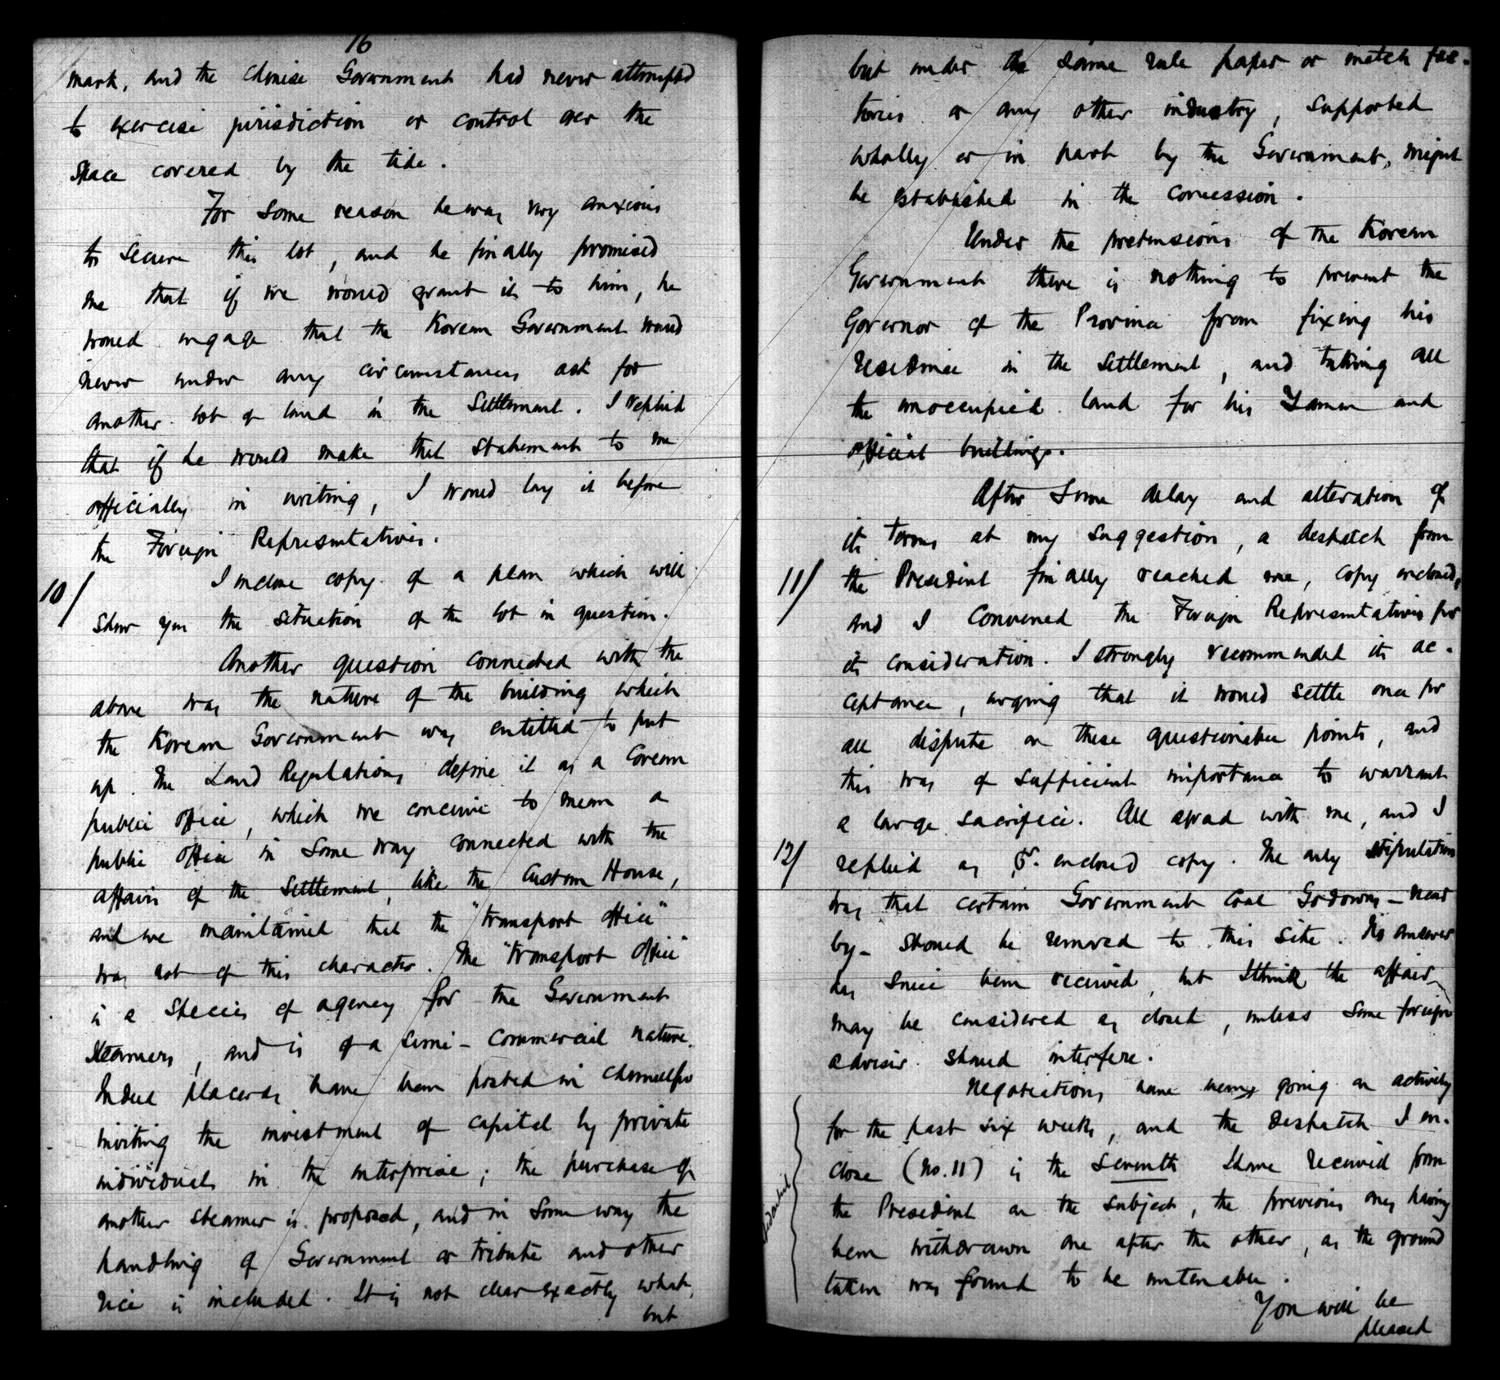 16
mark, and the Chinese Government had never attempted
to exercise jurisdiction or control over the
space covered by the tide.
For some reason he was very anxious
to secure this lot, and he finally promised
me that if we would grant it to him, he
would engage that the Korean Government would
never under any circumstances ask for
another lot of land in the Settlement. I replied
that if he would make that statement to me
officially in writing, I would lay it before
the Foreign Representatives.
10/ I inclose copy of a plan which will
show you the situation of the lot in question.
Another question connected with the
above was the nature of the building which
the Korean Government was entitled to put
up. The Land Regulations define it as a Corean
public office, which we conceive to mean a
public office in some way connected with the
affairs of the Settlement, like the Custom House,
and we maintained that the "transport office"
was not of this character. The "transport office"
is a species of agency for the Government
steamers, and is of a semi-commercial nature.
Indeed placards have been posted in Chemulpo
inviting the investment of capital by private
individuals in the enterprise; the purchase of
another steamer is proposed, and in some way the
handling of Government or tribute and other
rice is included. It is not clear exactly what,
but
but under the same rule paper or match fac-
tories or any other industry, supported
wholly or in part by the Government, might
be established in the concession.
Under the pretensions of the Korean
Government there is nothing to prevent the
Governor of the Province from fixing his
residence in the Settlement, and taking all
the unoccupied land for his Yamen and
official buildings.
After some delay and alteration of
its terms at my suggestion, a despatch from
11/ the President finally reached me, copy enclosed,
and I convened the Foreign Representatives for
its consideration. I strongly recommended its ac-
ceptance, urging that it would settle once for
all dispute on these questionable points, and
this was of sufficient importance to warrant
a large sacrifice. All agreed with me, and I
12/ replied as pr. enclosed copy. The only stipulation
was that certain Government Coal Godowns - near
by - should be removed to this site. No answer
has since been received, but I think the affair
may be considered as closed, unless some foreign
adviser should interfere.
Negotiations have been going on actively
for the past six weeks, and the despatch I en-
close (No. 11) is the seventh I have received from
the President on the subject, the previous ones having
been withdrawn one after the other, as the ground
taken was found to be untenable.
You will be
pleased